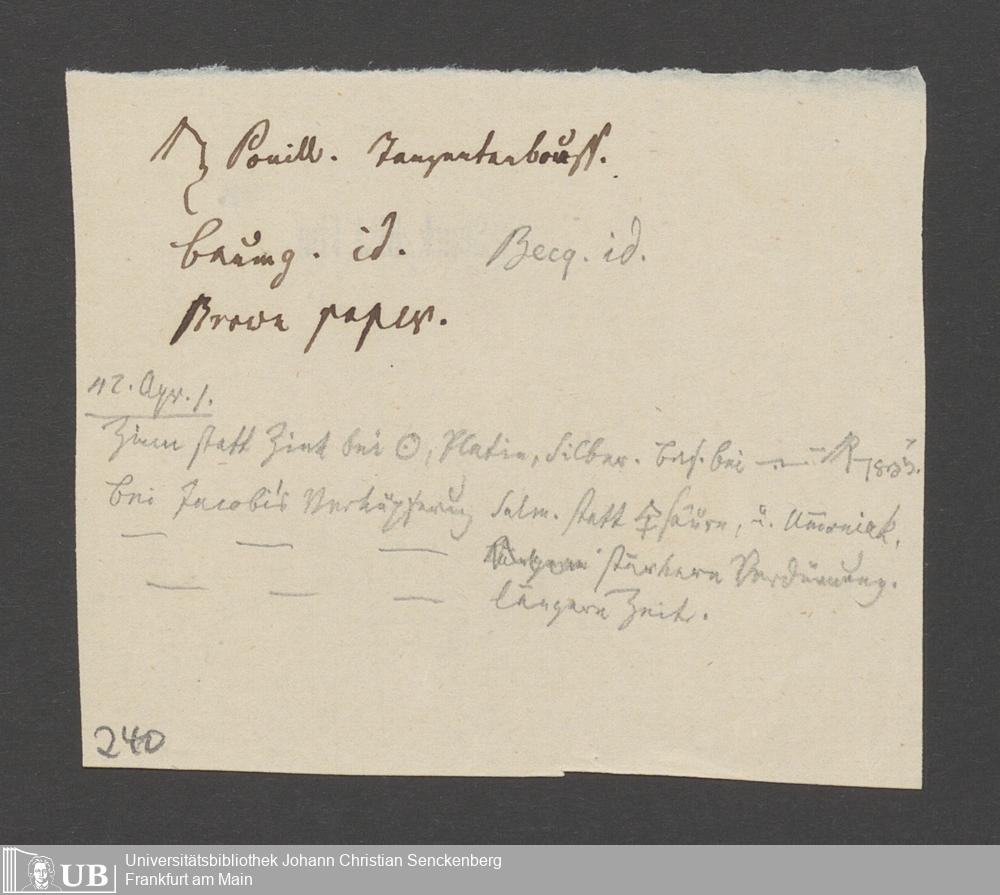 Pouill. Tangentenbouss.
Baumg. id. Becq. id.
Brown paper.
42. Apr. 1.
Zinn statt Zink bei ☉, Platin, Silber. bes. bei
bei Jacobi's Verkupferung Salm. statt säure, u. Ammoniak.
— — — stärkern Verdünnung.
— — — längern Zeit.
240
UB Universitätsbibliothek Johann Christian Senckenberg
Frankfurt am Main